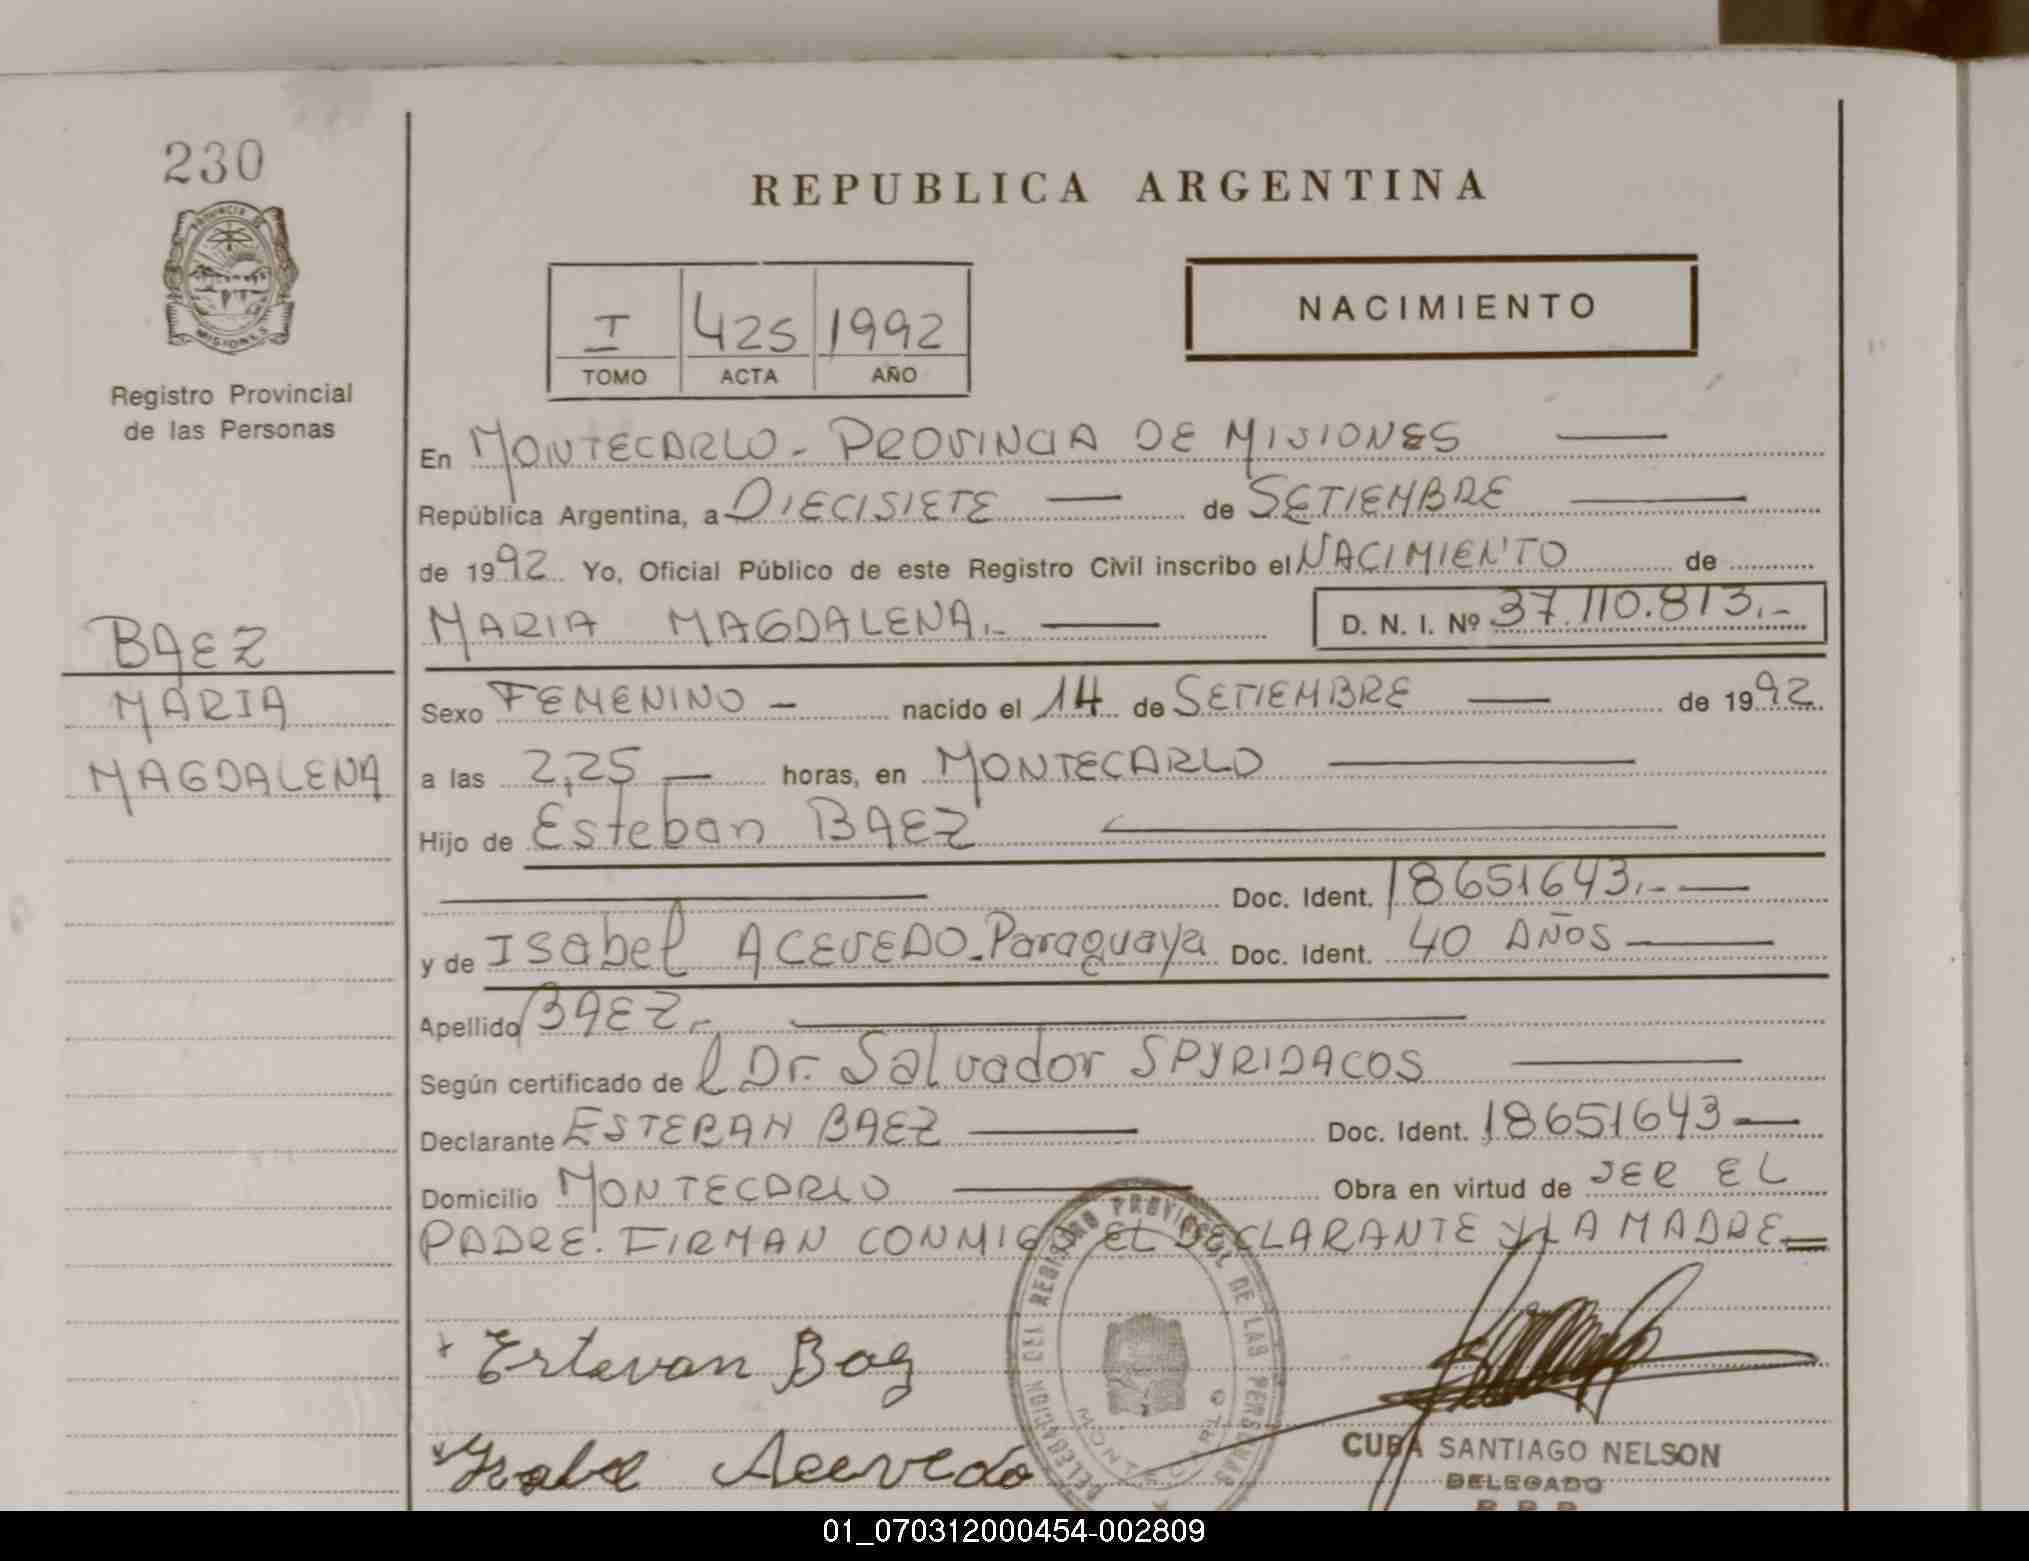 230
REPUBLICA ARGENTINA
PROVINCIA DE
MISIONES
Registro Provincial
de las Personas
I 425 1992
TOMO ACTA AÑO
NACIMIENTO
En MONTECARLO - PROVINCIA DE MISIONES
República Argentina, a DIECISIETE de SETIEMBRE
de 1992 Yo, Oficial Público de este Registro Civil inscribo el NACIMIENTO de
MARIA MAGDALENA.- D. N. I. Nº 37.110.813.-
BAEZ
MARIA
MAGDALENA
Sexo FEMENINO - nacido el 14 de SETIEMBRE de 1992
a las 2,25 horas, en MONTECARLO
Hijo de Esteban BAEZ
Doc. Ident. 18651643.-
y de Isabel ACEVEDO - Paraguaya Doc. Ident. 40 AÑOS
Apellido BAEZ.-
Según certificado del Dr. Salvador SPYRIDACOS
Declarante ESTEBAN BAEZ Doc. Ident. 18651643
Domicilio MONTECARLO Obra en virtud de SER EL
PADRE. FIRMAN CONMIGO EL DECLARANTE Y LA MADRE
DELEGACION DEL REGISTRO PROVINCIAL DE LAS PERSONAS
MONTECARLO
Estevan Baez
Isabel Acevedo
CUBA SANTIAGO NELSON
DELEGADO
R.P.P.
01_070312000454-002809